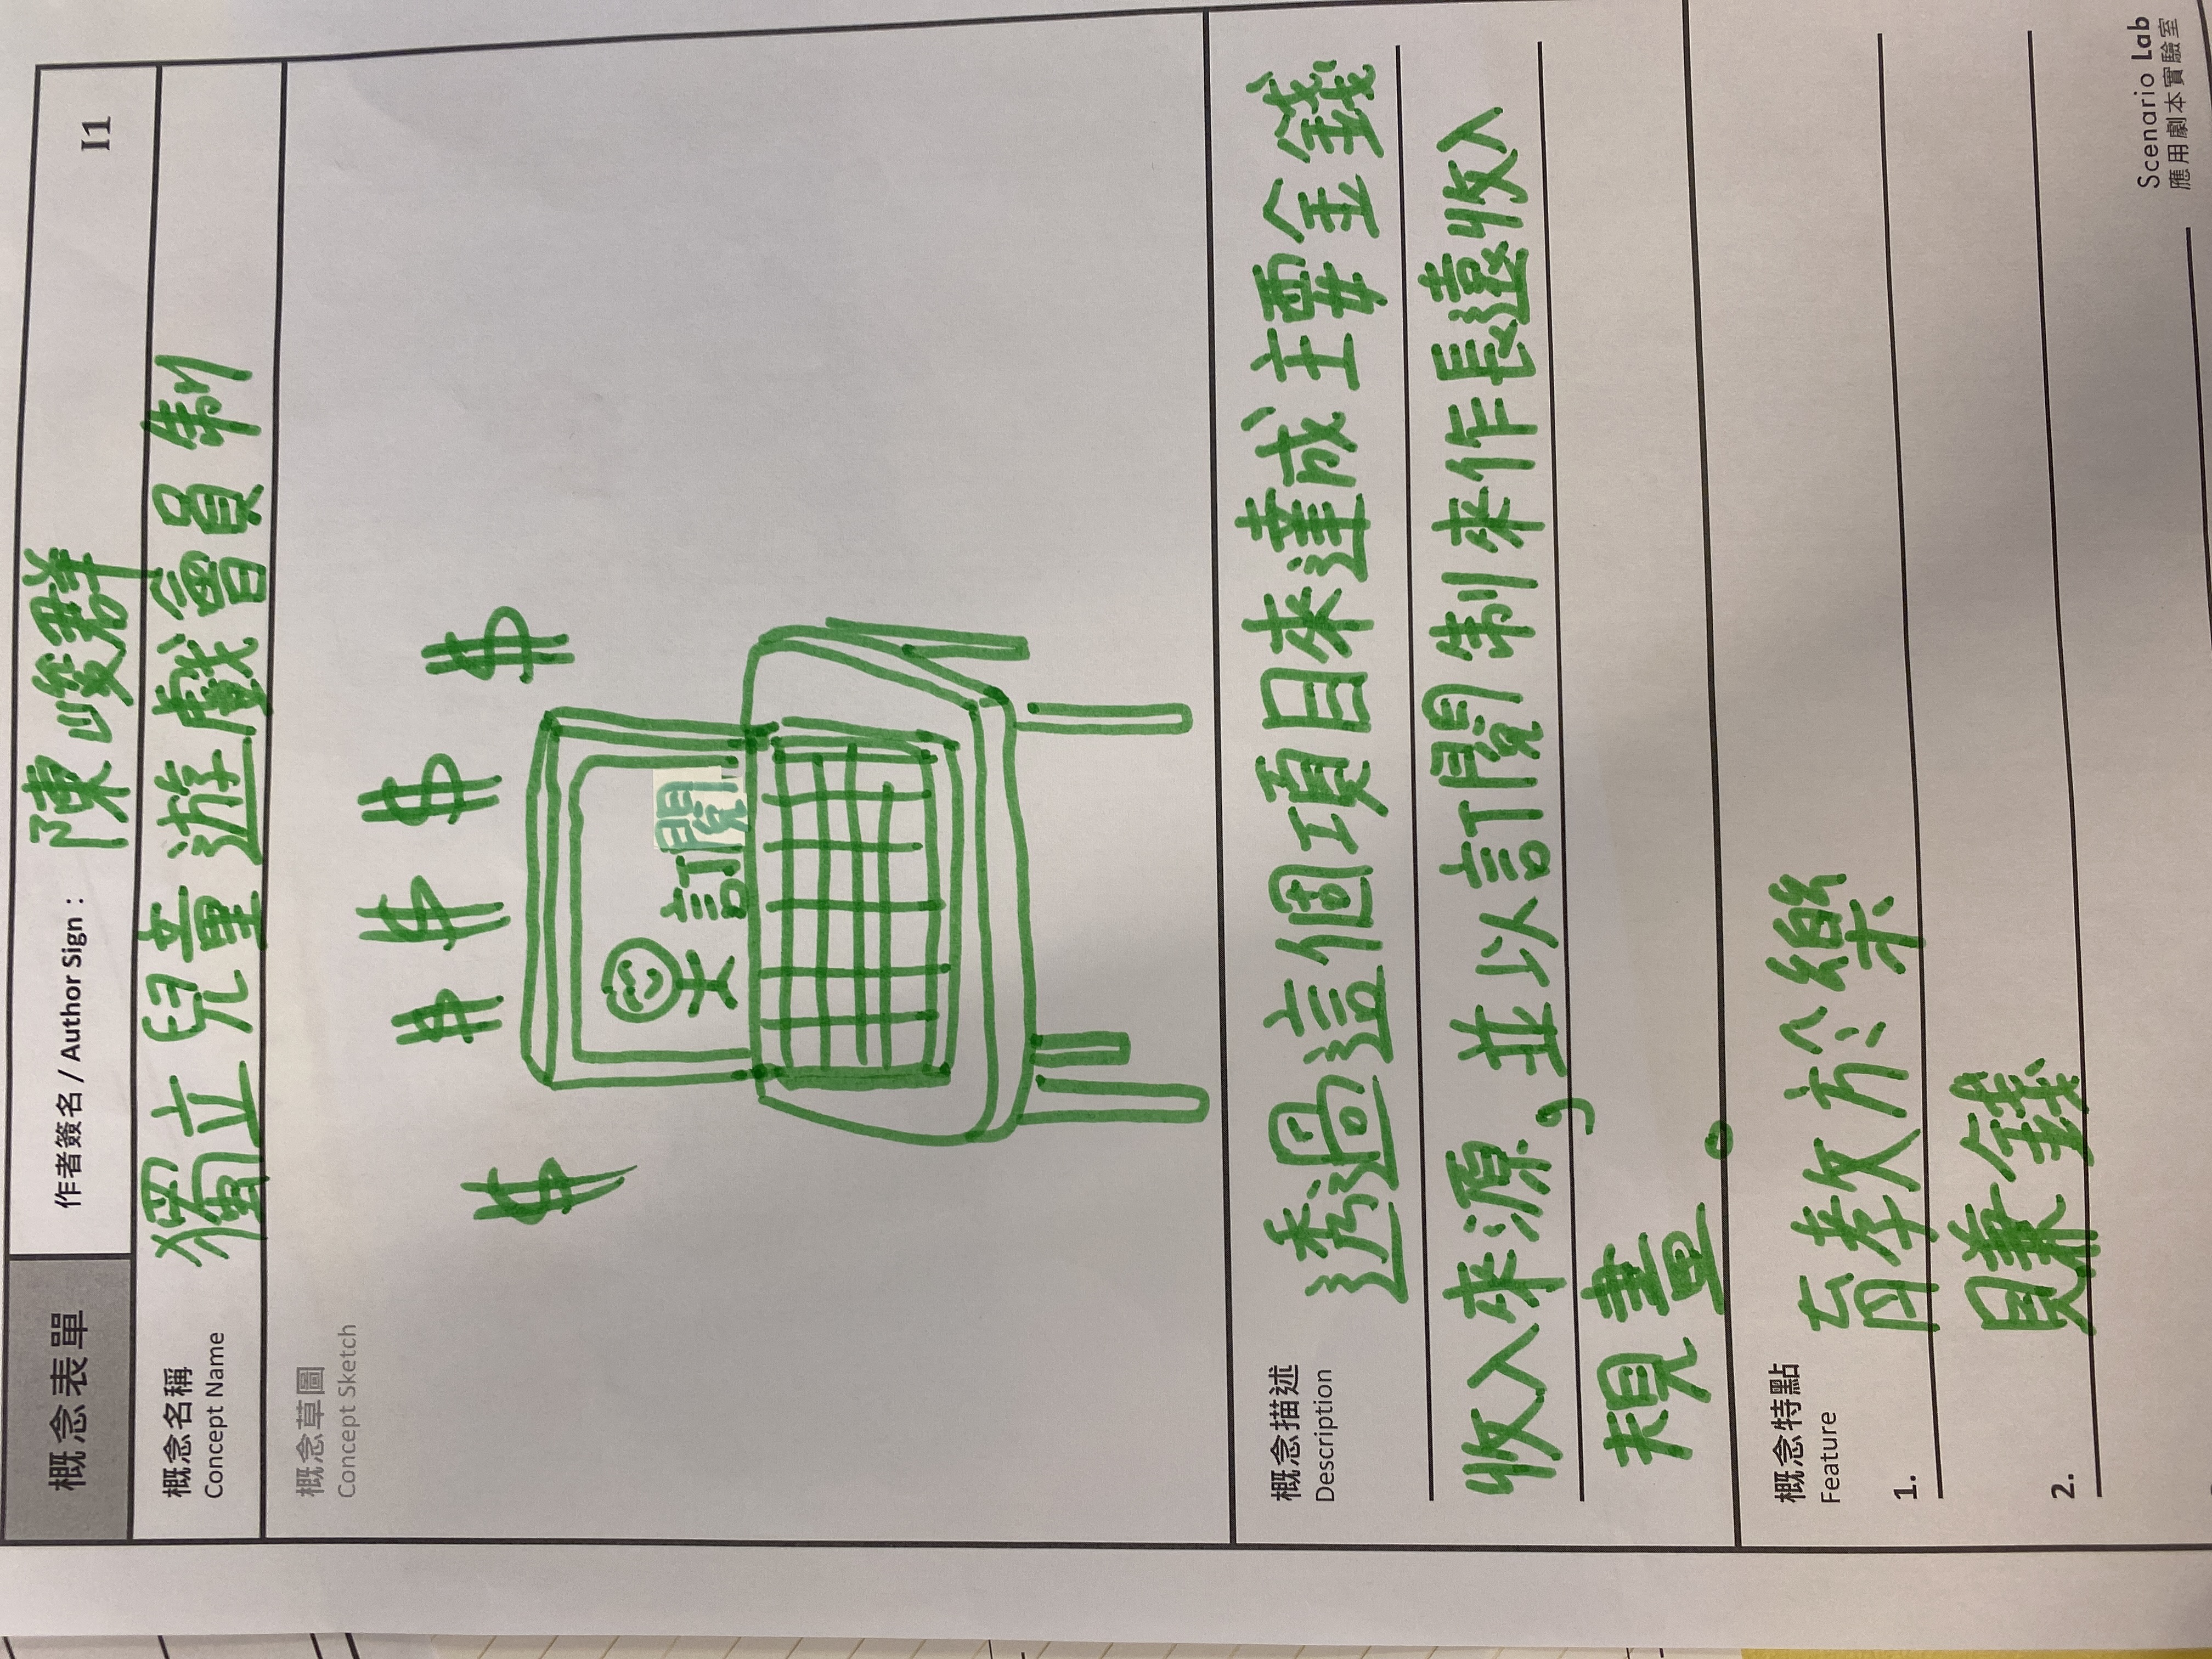 概念表單
作者簽名 / Author Sign : 陳峻群
I1
概念名稱
Concept Name
獨立兒童遊戲會員制
概念草圖
Concept Sketch
$ $ $ $ $
訂閱
概念描述
Description
透過這個項目來達成主要金錢
收入來源，並以訂閱制來作長遠收入
規畫。
概念特點
Feature
1. 育教於樂
2. 賺錢
Scenario Lab
應用劇本實驗室